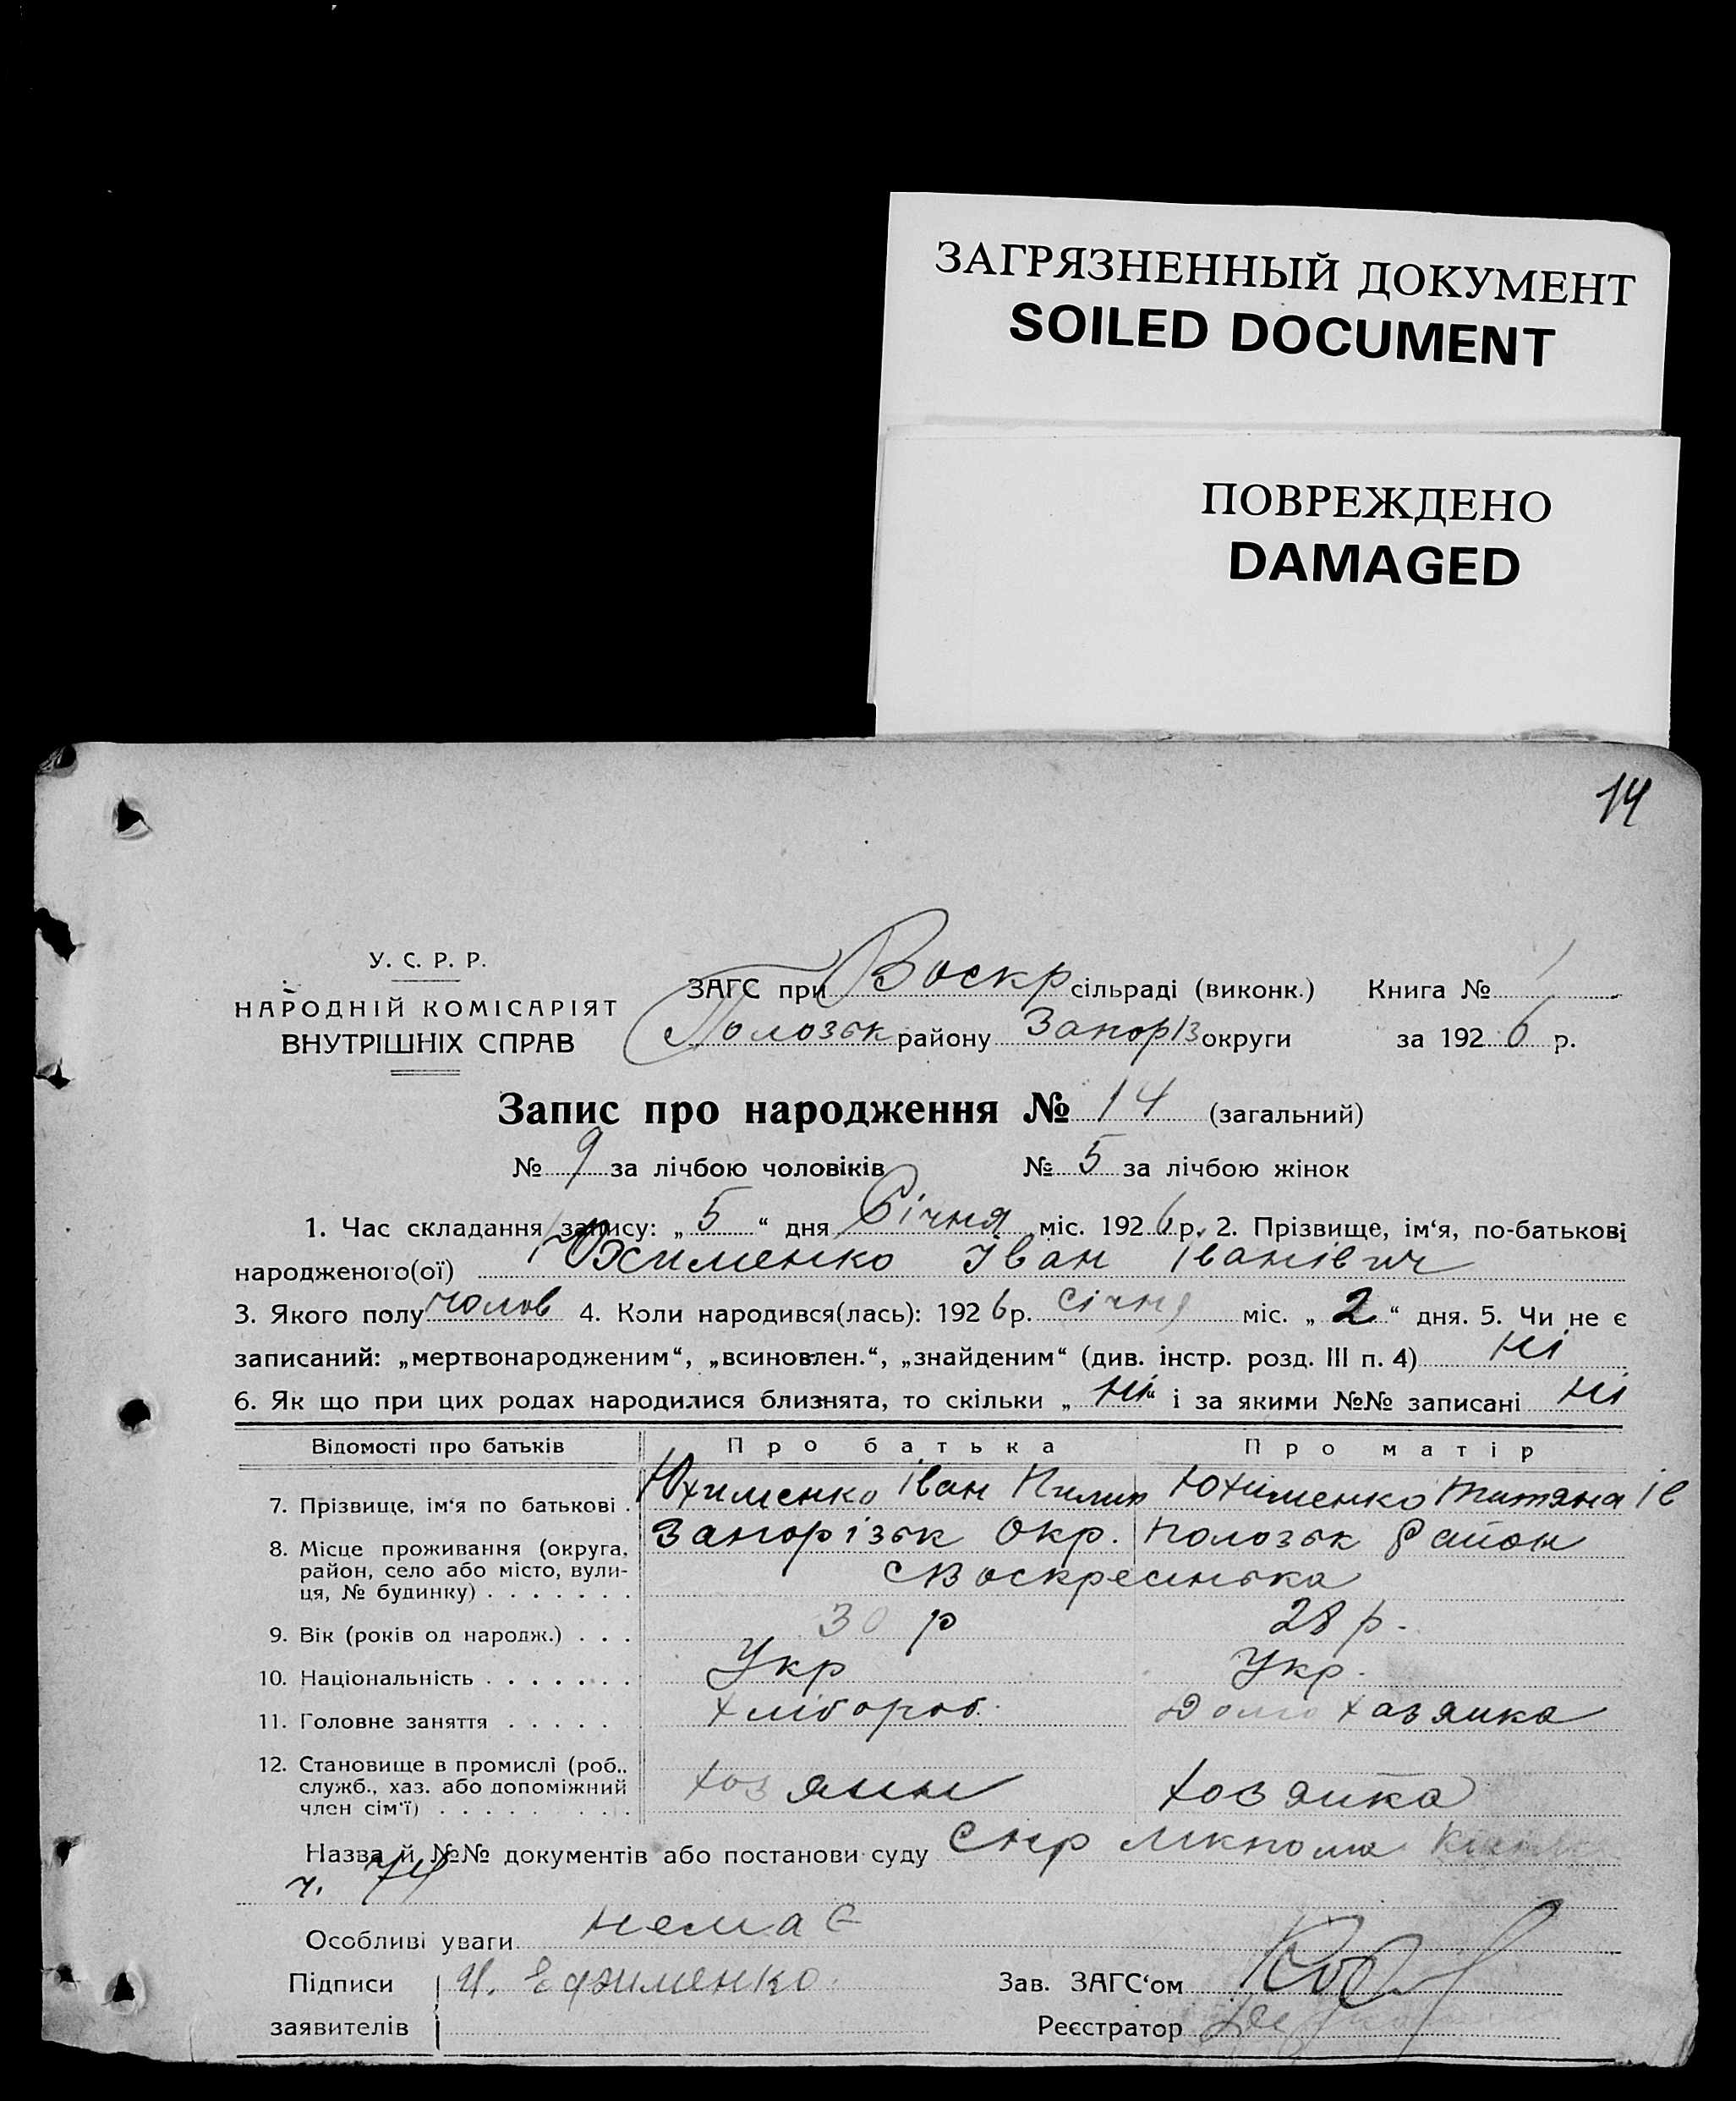 ЗАГРЯЗНЕННЫЙ ДОКУМЕНТ
SOILED DOCUMENT
ПОВРЕЖДЕНО
DAMAGED
14
У. С. Р. Р.
НАРОДНІЙ КОМІСАРІЯТ
ВНУТРІШНІХ СПРАВ
ЗАГС при Воскр сільраді (виконк.) Книга № 1
Полозьк району Запоріз округи за 192 6 р.
Запис про народження № 14 (загальний)
№ 9 за лічбою чоловіків № 5 за лічбою жінок
1. Час складання запису: „ 5 “ дня Січня міс. 192 6 р. 2. Прізвище, ім‘я, по-батькові
народженого(ої) Юхименко Іван Іванівич
3. Якого полу чолов 4. Коли народився(лась): 192 6 р. січня міс. „ 2 “ дня. 5. Чи не є
записаний: „мертвонародженим“, „всиновлен.“, „знайденим“ (див. інстр. розд. III п. 4) Ні
6. Як що при цих родах народилися близнята, то скільки „ Ні “ і за якими №№ записані Ні
Відомості про батьків Про батька Про матір
7. Прізвище, ім‘я по батькові . Юхименко Іван Пилип Юхименко Титяна Ів
8. Місце проживання (округа, район, село або місто, вули- ця, № будинку) . . . . . . . Запорізьк Окр. Полозьк Район
с Воскресинька
9. Вік (років од народж.) . . . 30 р 28 р.
10. Національність . . . . . . . Укр Укр.
11. Головне заняття . . . . . Хлібороб. Домо хазяика
12. Становище в промислі (роб.. служб., хаз. або допоміжний член сім‘ї) . . . . . . . . . хозяин хозяика
Назва й №№ документів або постанови суду
ч. 74
Особливі уваги немає
Підписи И. Ефименко. Зав. ЗАГС‘ом
заявителів Реєстратор